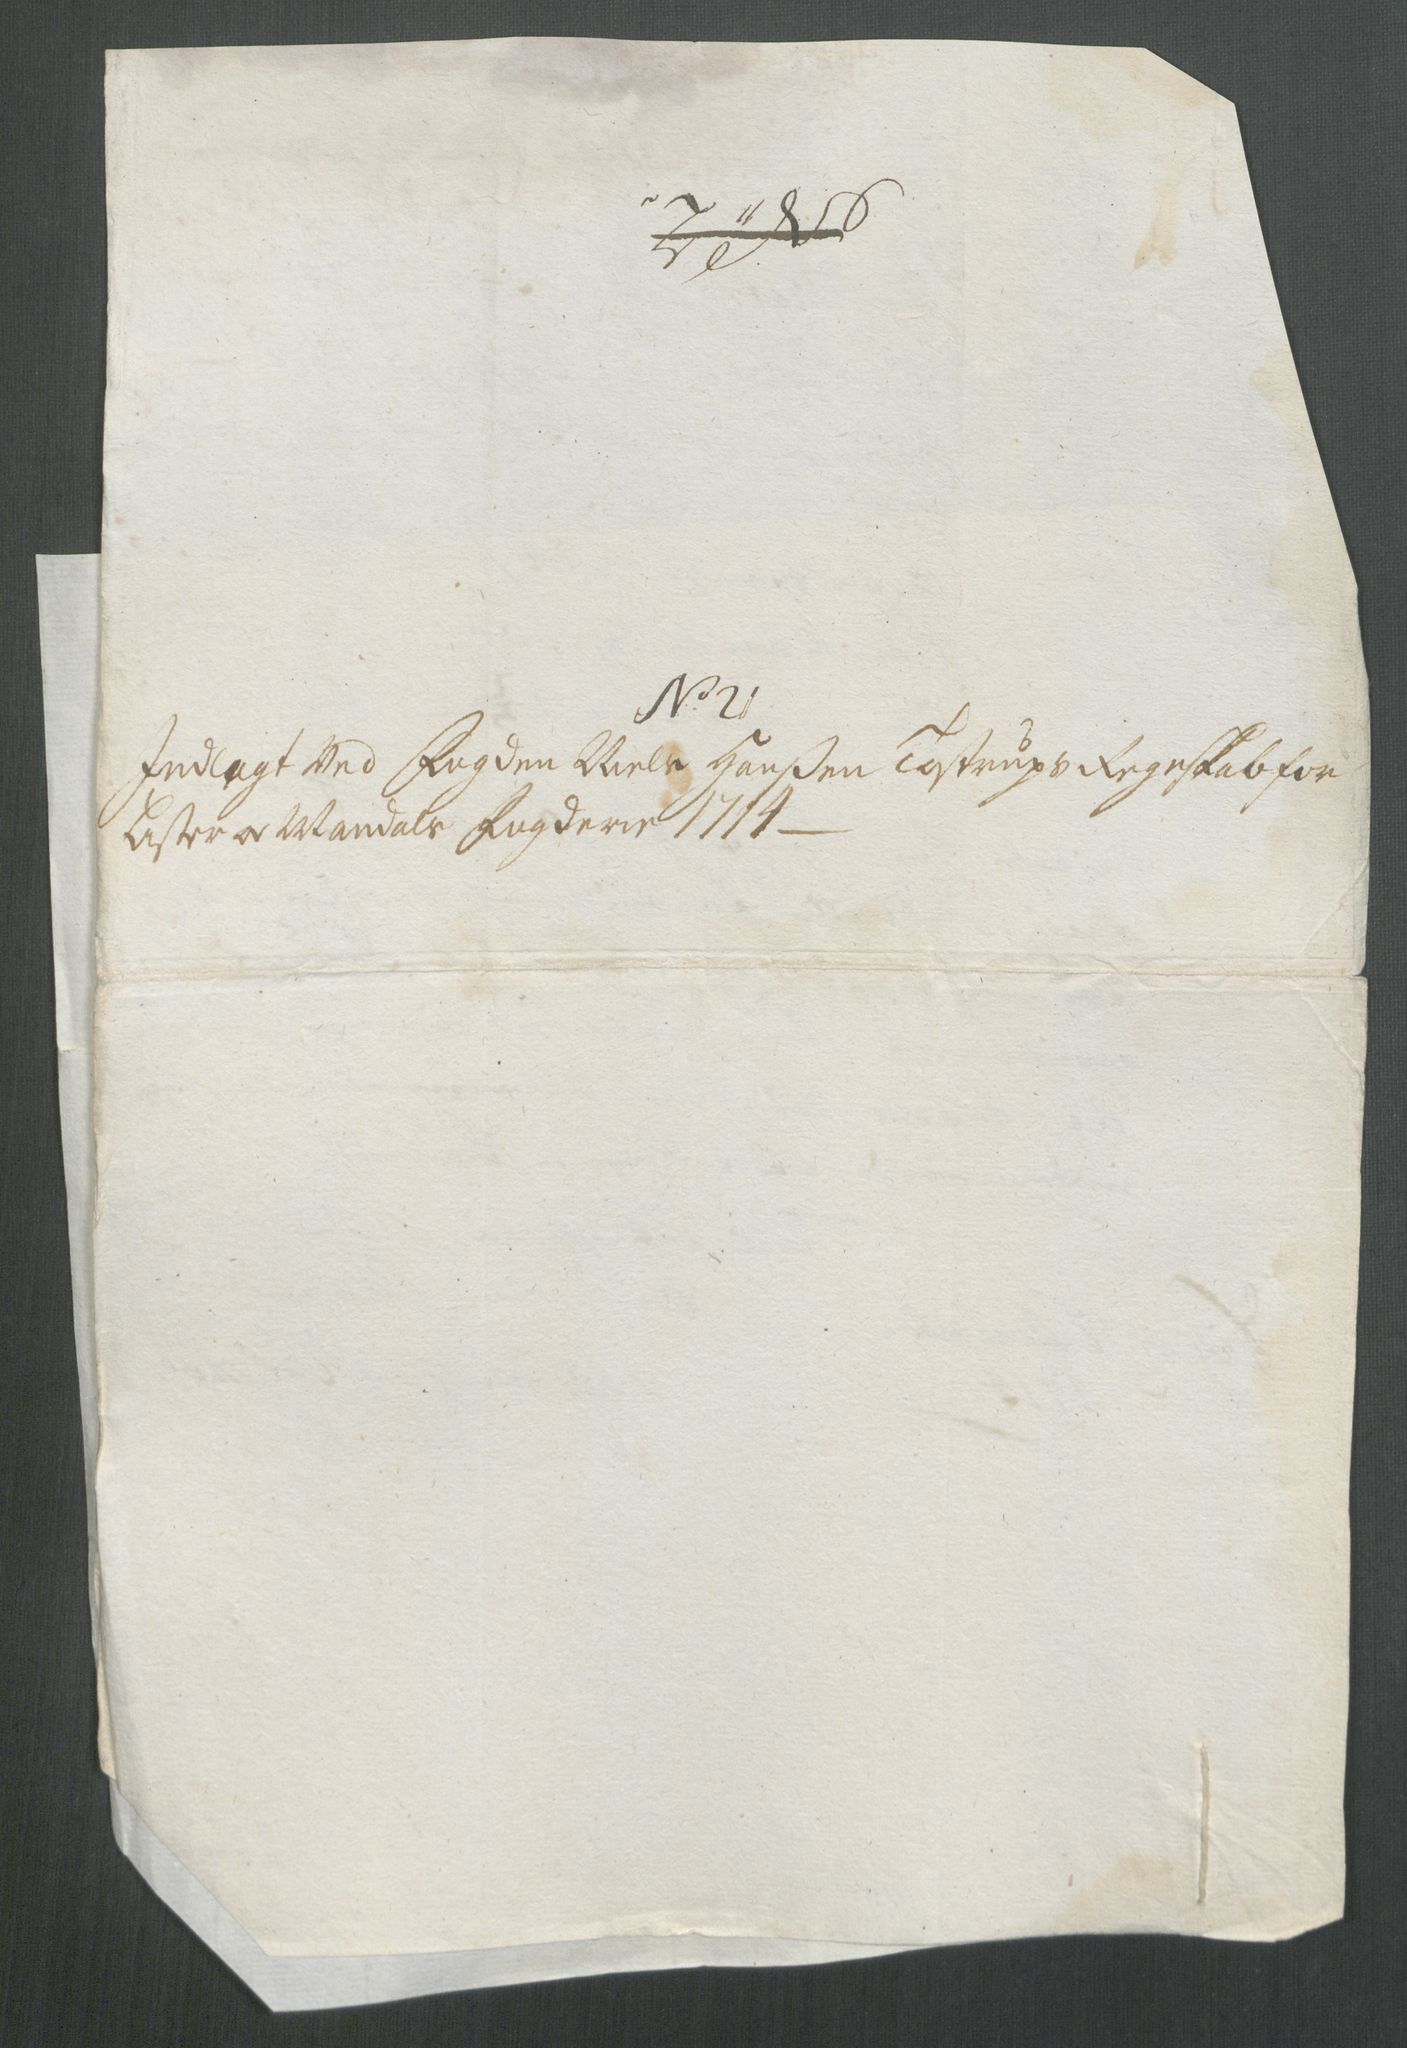 No 21
Indlagt Ved Fogden Niels Hanßen Tostrups Regnskab for
Lister og Mandals Fogderie 1714